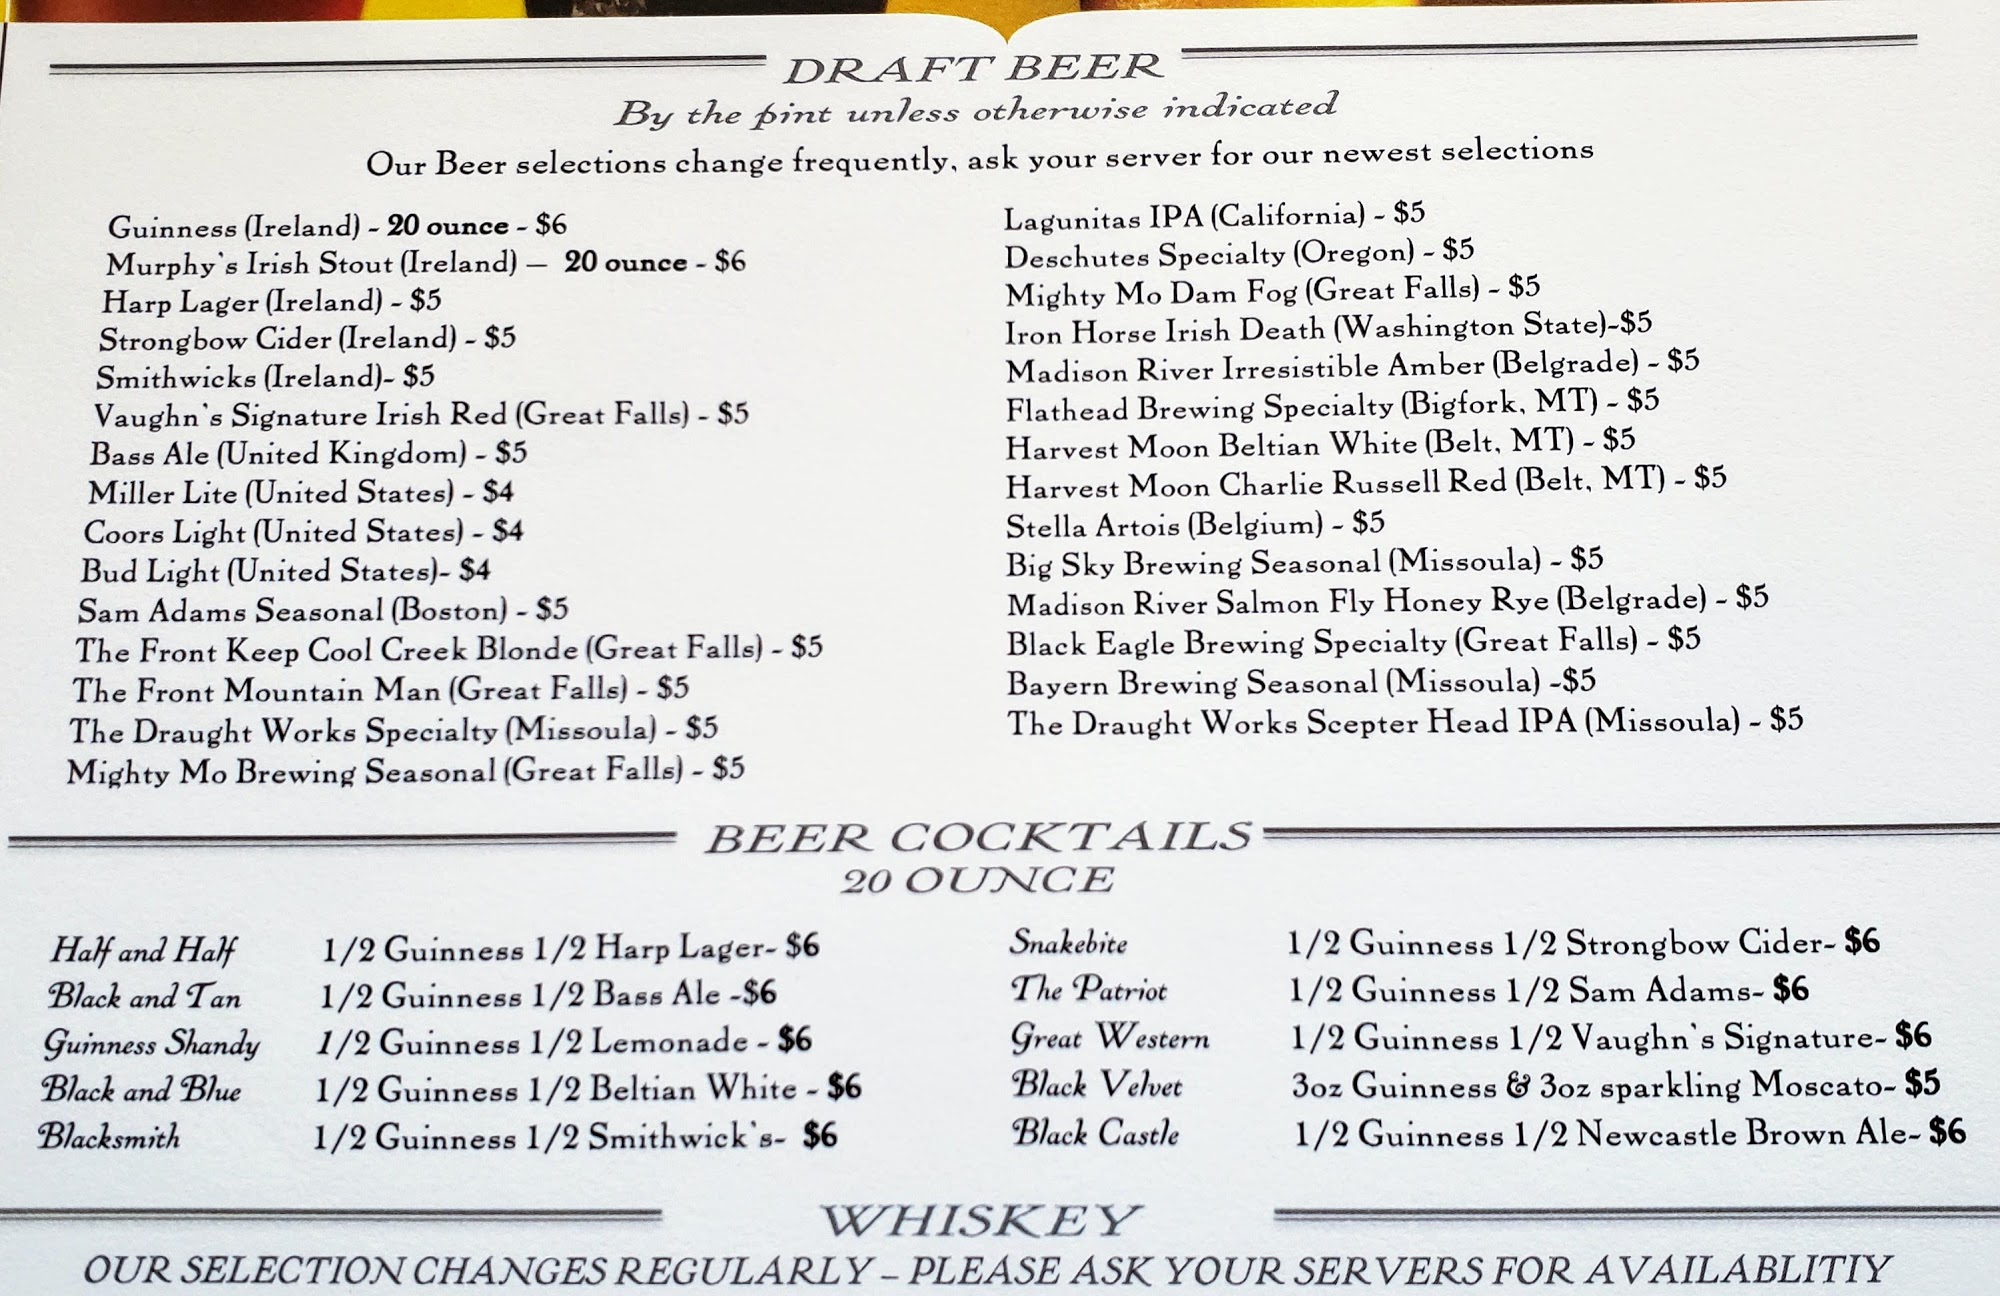 DRAFT BEER
By the pint unless otherwise indicated
Our Beer selections change frequently, ask your server for our newest selections
Guinness (Ireland) - 20 ounce - $6
Murphy's Irish Stout (Ireland) — 20 ounce - $6
Harp Lager (Ireland) - $5
Strongbow Cider (Ireland) - $5
Smithwicks (Ireland)- $5
Vaughn's Signature Irish Red (Great Falls) - $5
Bass Ale (United Kingdom) - $5
Miller Lite (United States) - $4
Coors Light (United States) - $4
Bud Light (United States)- $4
Sam Adams Seasonal (Boston) - $5
The Front Keep Cool Creek Blonde (Great Falls) - $5
The Front Mountain Man (Great Falls) - $5
The Draught Works Specialty (Missoula) - $5
Mighty Mo Brewing Seasonal (Great Falls) - $5
Lagunitas IPA (California) - $5
Deschutes Specialty (Oregon) - $5
Mighty Mo Dam Fog (Great Falls) - $5
Iron Horse Irish Death (Washington State)-$5
Madison River Irresistible Amber (Belgrade) - $5
Flathead Brewing Specialty (Bigfork, MT) - $5
Harvest Moon Beltian White (Belt, MT) - $5
Harvest Moon Charlie Russell Red (Belt, MT) - $5
Stella Artois (Belgium) - $5
Big Sky Brewing Seasonal (Missoula) - $5
Madison River Salmon Fly Honey Rye (Belgrade) - $5
Black Eagle Brewing Specialty (Great Falls) - $5
Bayern Brewing Seasonal (Missoula) -$5
The Draught Works Scepter Head IPA (Missoula) - $5
BEER COCKTAILS
20 OUNCE
Half and Half 1/2 Guinness 1/2 Harp Lager- $6
Black and Tan 1/2 Guinness 1/2 Bass Ale -$6
Guinness Shandy 1/2 Guinness 1/2 Lemonade - $6
Black and Blue 1/2 Guinness 1/2 Beltian White - $6
Blacksmith 1/2 Guinness 1/2 Smithwick's- $6
Snakebite 1/2 Guinness 1/2 Strongbow Cider- $6
The Patriot 1/2 Guinness 1/2 Sam Adams- $6
Great Western 1/2 Guinness 1/2 Vaughn's Signature- $6
Black Velvet 3oz Guinness & 3oz sparkling Moscato- $5
Black Castle 1/2 Guinness 1/2 Newcastle Brown Ale- $6
WHISKEY
OUR SELECTION CHANGES REGULARLY – PLEASE ASK YOUR SERVERS FOR AVAILABLITIY